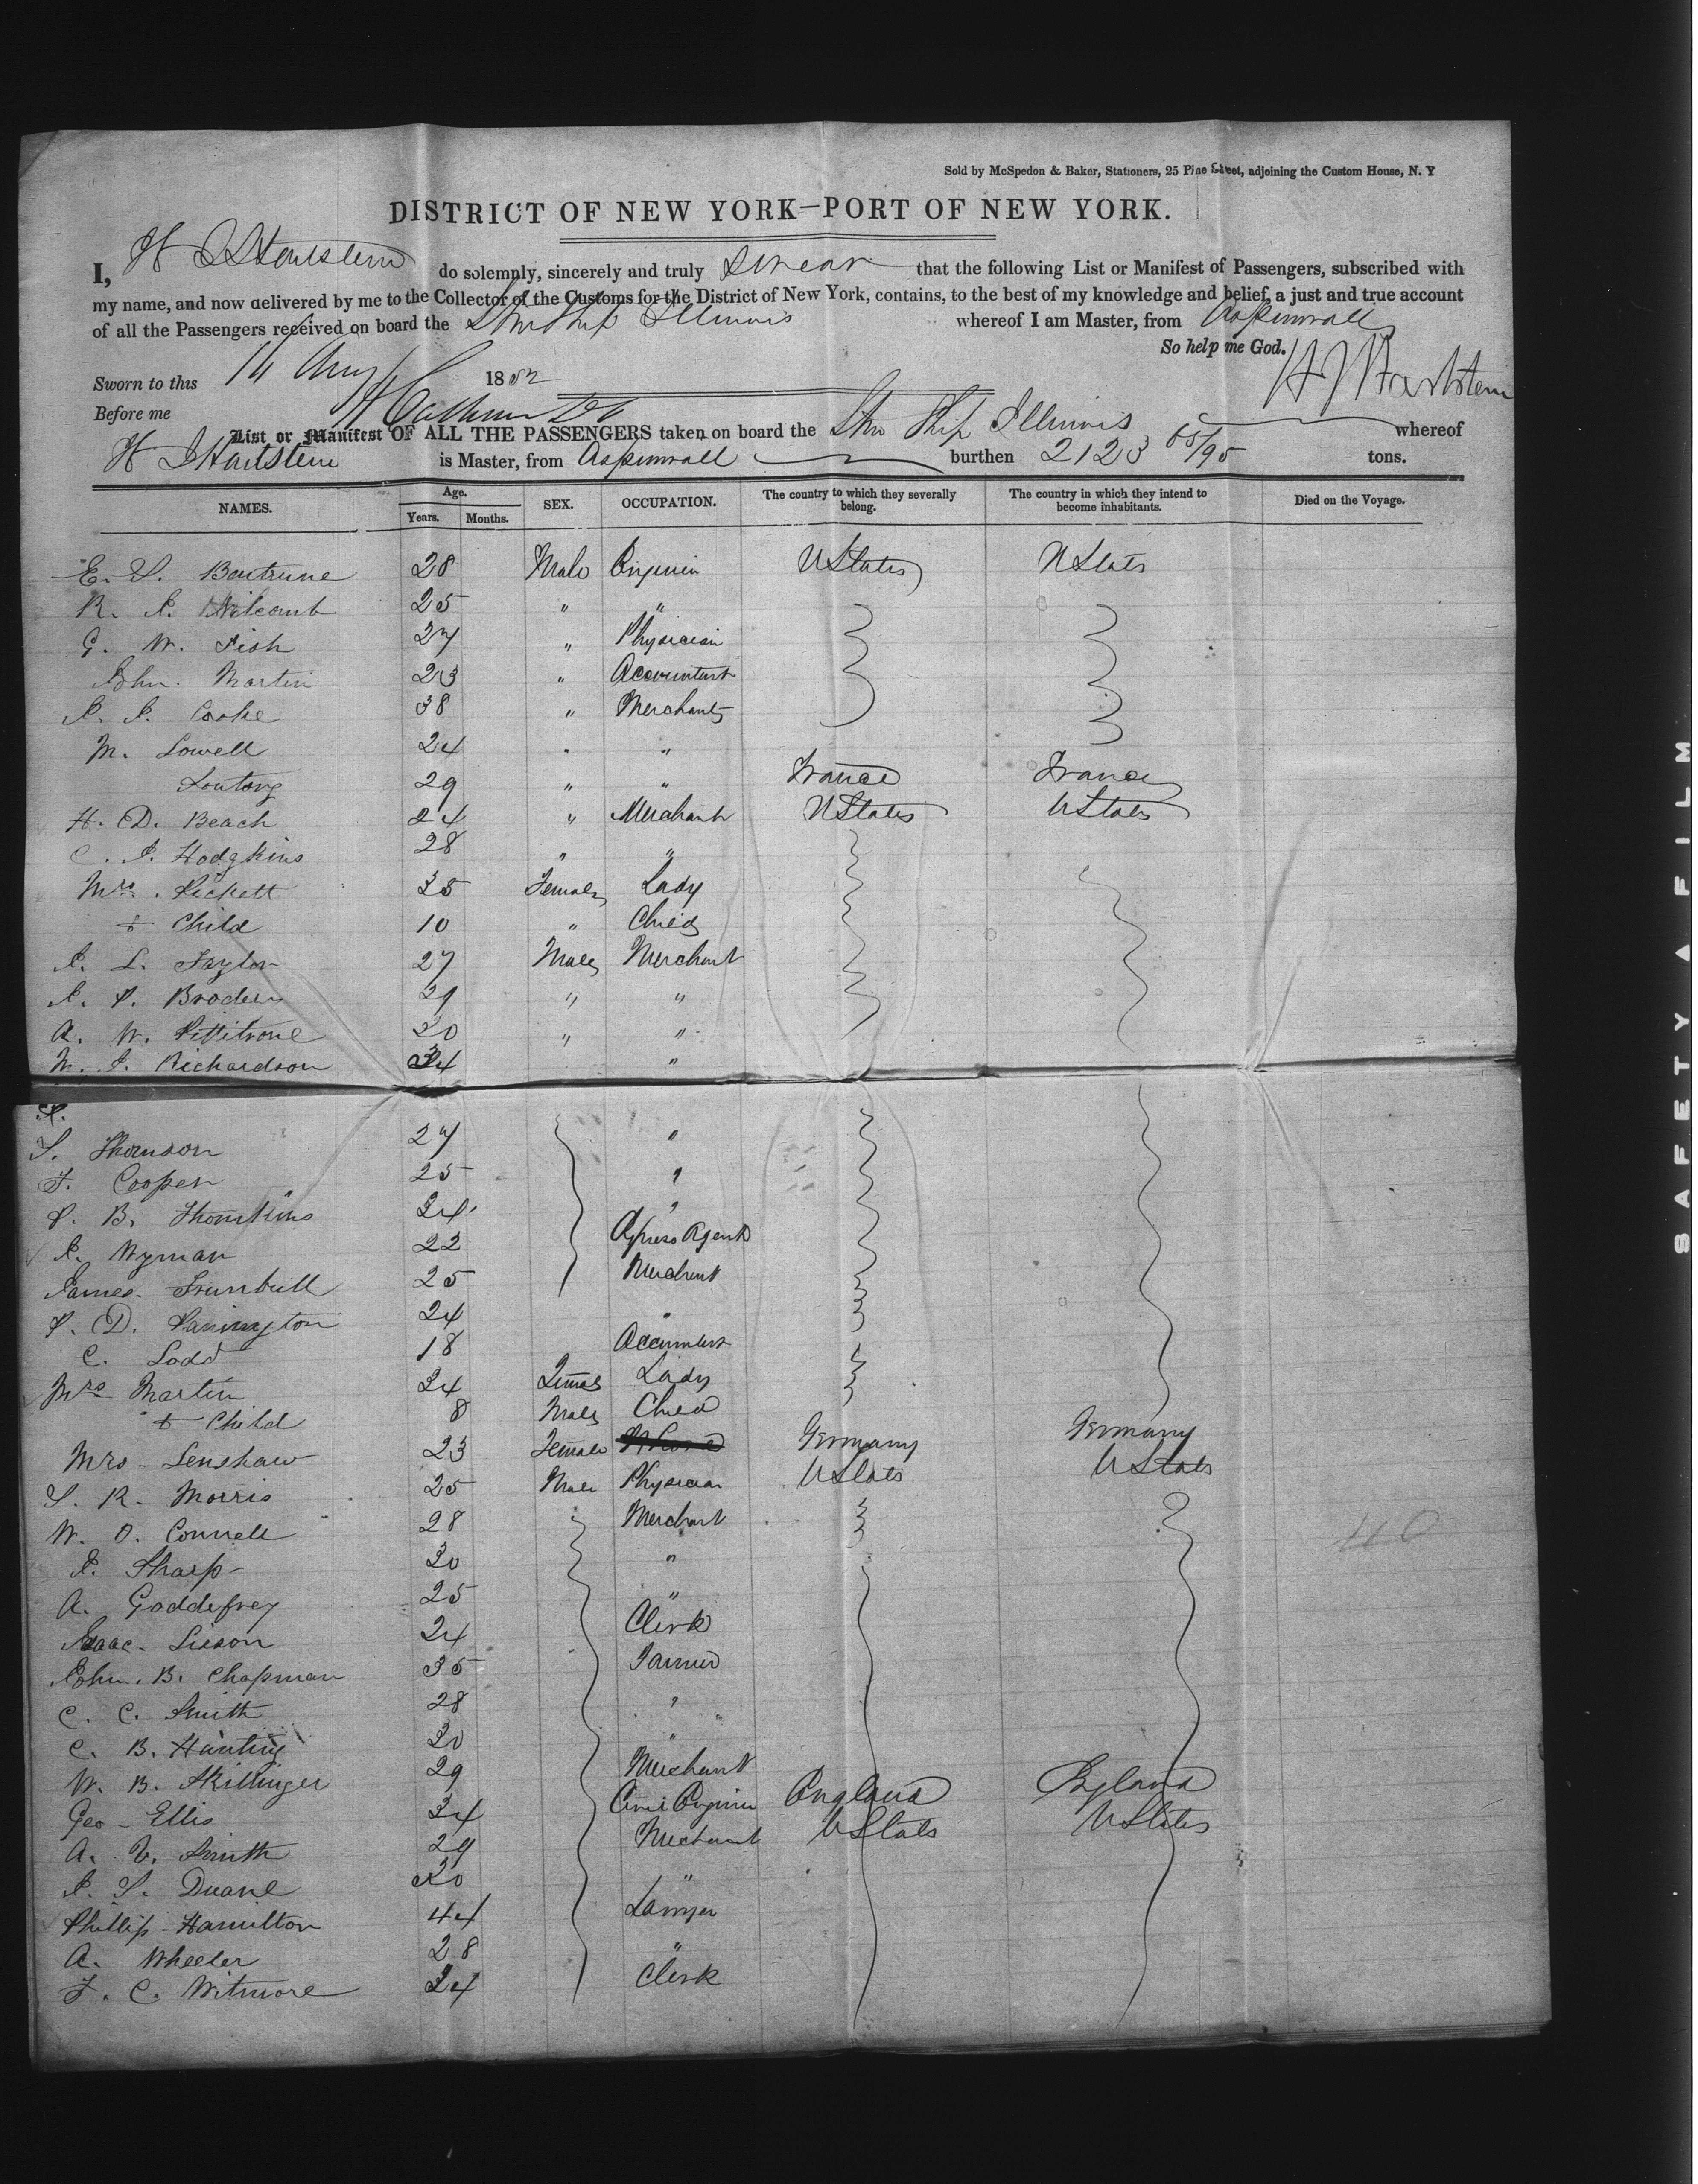 Sold by McSpedon & Baker, Stationers, 25 Pine Street, adjoining the Custom House, N. Y
DISTRICT OF NEW YORK—PORT OF NEW YORK.
I, H J Hartstene do solemnly, sincerely and truly swear that the following List or Manifest of Passengers, subscribed with
my name, and now delivered by me to the Collector of the Customs for the District of New York, contains, to the best of my knowledge and belief, a just and true account
of all the Passengers received on board the Stm Ship Illinois whereof I am Master, from Aspinwall
So help me God.
Sworn to this 14 Aug 1852 H J Hartstene
Before me
List or Manifest OF ALL THE PASSENGERS taken on board the Stm Ship Illinois whereof
H J Hartstene is Master, from Aspinwall burthen 2123 65/95 tons.
NAMES. Age. Years. Months. SEX. OCCUPATION. The country to which they severally belong. The country in which they intend to become inhabitants. Died on the Voyage.
E. S. 28 Male Engineer UStates UStates
R. J. 25 " "
G. W. Fish 27 " Physician
John. Martin 23 " Accountant
J. J. Cooke 38 " Merchant
M. Lowell 24 " "
29 " " France France
H. D. Beach 24 " Merchant UStates UStates
C. J. Hodgkins 28 " "
Mrs. Pickett 35 Female Lady
+ Child 10 " Child
J. L. Taylor 27 Male Merchant
J. P. 29 " "
A. W. 30 " "
M. J. Richardson 34 "
S. Thomson 27 "
F. Cooper 25 "
P. B. Thomkins 34 "
J. Wyman 22 Express Agent
James. Trumbull 25 Merchant
P. D. 24 "
C. Ladd 18 Accountant
Mrs Martin 24 Female Lady
+ Child 8 Male Child
Mrs - Lenshaw 23 Female Germany Germany
S. R. Morris 25 Male Physician UStates UStates
W. O. Connell 28 Merchant
J. Sharp - 30 "
A. Goddefrey 25 "
Isaac. Sisson 24 Clerk
John. B. Chapman 35 Farmer
C. C. Smith 28 "
C. B. Hunting 30 "
W. B. Skillinger 29 Merchant
Geo - Ellis 34 Civil Engineer England England
A. V. Smith 29 Merchant UStates UStates
J. S. Duane 30 "
Phillip - Hamilton 44 Lawyer
A. Wheeler 28 "
F. C. Witmore 34 Clerk
SAFETY A FILM